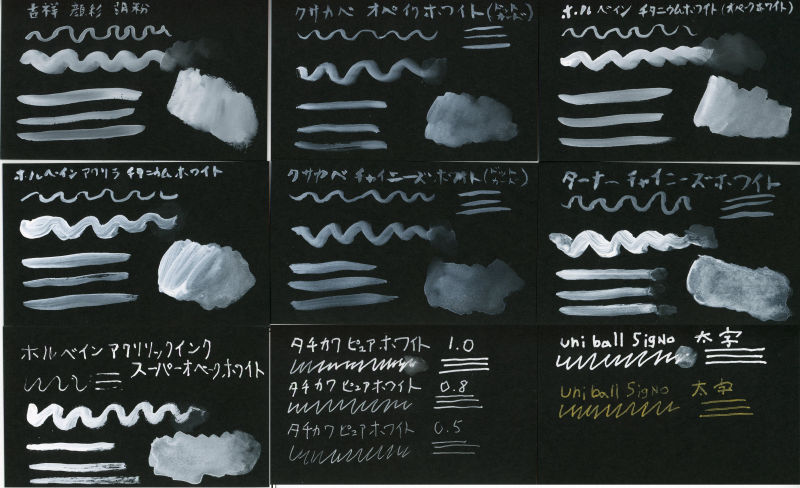 吉祥 顔彩 胡粉
クサカベ オペイクホワイト(ドットカード)
ホルベイン チタニウムホワイト(オペークホワイト)
ホルベインアクリラ チタニウムホワイト
クサカベ チャイニーズホワイト(ドットカード)
ターナー チャイニーズホワイト
ホルベイン アクリリックインク
スーパーオペークホワイト
タチカワピュアホワイト 1.0
タチカワピュアホワイト 0.8
タチカワピュアホワイト 0.5
uni ball Signo 太字
uni ball Signo 太字